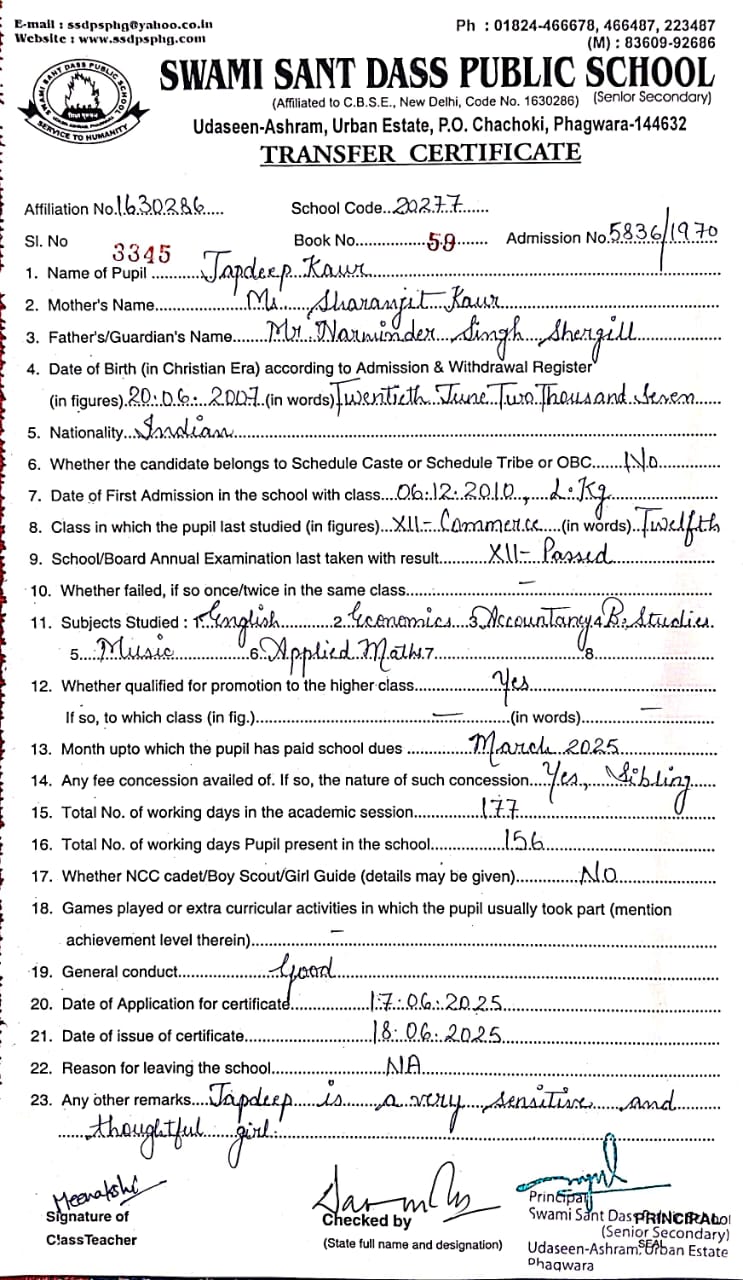 E-mail : ssdpsphg@yahoo.co.in
Website : www.ssdpsphg.com
Ph : 01824-466678, 466487, 223487
(M) : 83609-92686
SWAMI SANT DASS PUBLIC SCHOOL
SERVICE TO HUMANITY
(Affiliated to C.B.S.E., New Delhi, Code No. 1630286) (Senior Secondary)
Udaseen-Ashram, Urban Estate, P.O. Chachoki, Phagwara-144632
TRANSFER CERTIFICATE
Affiliation No. 1630286 School Code 20277
Sl. No 3345 Book No. 59 Admission No. 5836/1970
1. Name of Pupil Japdeep Kaur
2. Mother's Name Ms. Sharanjit Kaur
3. Father's/Guardian's Name Mr. Narminder Singh Shergill
4. Date of Birth (in Christian Era) according to Admission & Withdrawal Register
(in figures) 20.06.2007 (in words) Twentieth June Two Thousand Seven
5. Nationality Indian
6. Whether the candidate belongs to Schedule Caste or Schedule Tribe or OBC No
7. Date of First Admission in the school with class 06.12.2010, L.Kg
8. Class in which the pupil last studied (in figures) XII- Commerce (in words) Twelfth
9. School/Board Annual Examination last taken with result XII- Passed
10. Whether failed, if so once/twice in the same class —
11. Subjects Studied : 1. English 2. Economics 3. Accountancy 4. B. Studies
5. Music 6. Applied Maths 7 8
12. Whether qualified for promotion to the higher class Yes
If so, to which class (in fig.) — (in words) —
13. Month upto which the pupil has paid school dues March 2025
14. Any fee concession availed of. If so, the nature of such concession Yes, Sibling
15. Total No. of working days in the academic session 177
16. Total No. of working days Pupil present in the school 156
17. Whether NCC cadet/Boy Scout/Girl Guide (details may be given) No
18. Games played or extra curricular activities in which the pupil usually took part (mention
achievement level therein) —
19. General conduct Good
20. Date of Application for certificate 17.06.2025
21. Date of issue of certificate 18.06.2025
22. Reason for leaving the school NA
23. Any other remarks Japdeep is a very sensitive and
thoughtful girl.
Meenakshi
Signature of
ClassTeacher
Checked by
(State full name and designation)
Principal
Swami Sant Dass PRINCIPAL
(Senior Secondary)
SEAL
Udaseen-Ashram, Urban Estate
Phagwara